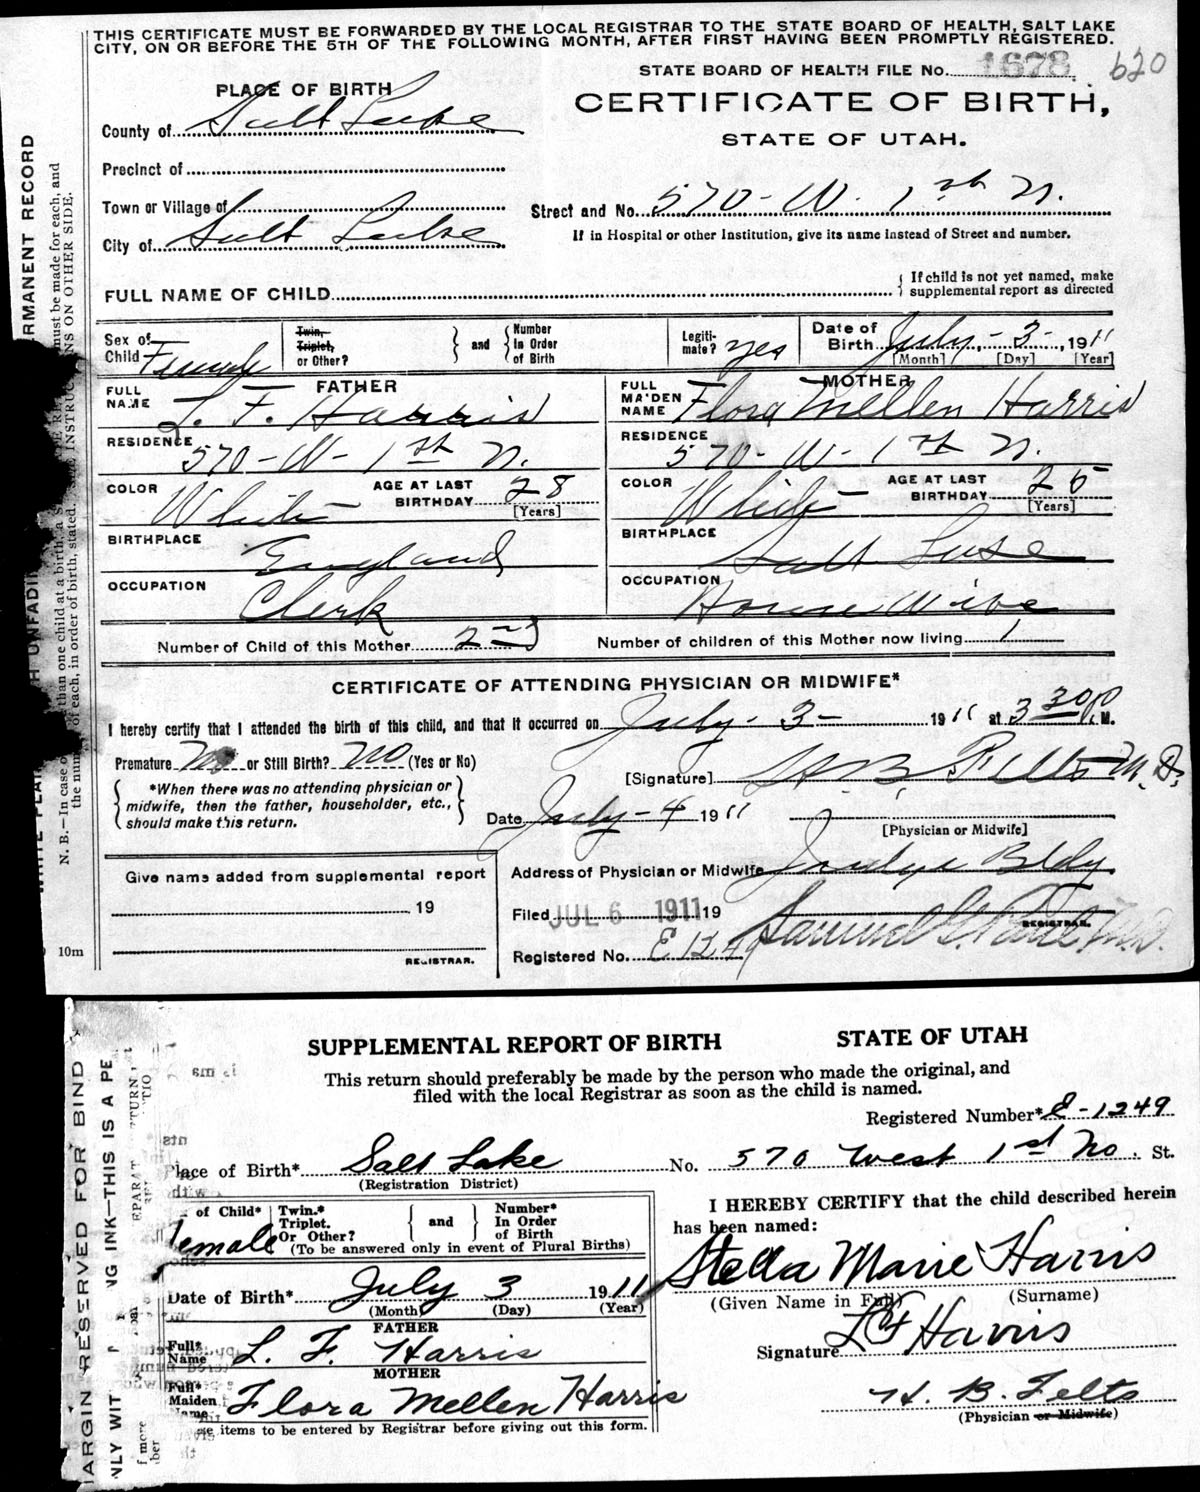 THIS CERTIFICATE MUST BE FORWARDED BY THE LOCAL REGISTRAR TO THE STATE BOARD OF HEALTH, SALT LAKE
CITY, ON OR BEFORE THE 5TH OF THE FOLLOWING MONTH, AFTER FIRST HAVING BEEN PROMPTLY REGISTERED.
STATE BOARD OF HEALTH FILE No. 1678 620
PLACE OF BIRTH
CERTIFICATE OF BIRTH,
STATE OF UTAH.
County of Salt Lake
Precinct of
Town or Village of
Street and No. 570 - W. 1st N.
City of Salt Lake
If in Hospital or other Institution, give its name instead of Street and number.
FULL NAME OF CHILD
If child is not yet named, make
supplemental report as directed
Sex of Child Female
Twin, Triplet, or Other?
and
Number In Order of Birth
Legiti-mate? yes
Date of Birth July - 3 - , 1911
[Month] [Day] [Year]
FATHER
FULL NAME L. F. Harris
RESIDENCE 570 - W - 1st N.
COLOR White
AGE AT LAST BIRTHDAY 28
[Years]
BIRTHPLACE England
OCCUPATION Clerk
MOTHER
FULL MAIDEN NAME Flora Mellen Harris
RESIDENCE 570 - W - 1st N.
COLOR White
AGE AT LAST BIRTHDAY 25
[Years]
BIRTHPLACE Salt Lake
OCCUPATION House Wife
Number of Child of this Mother 2nd
Number of children of this Mother now living 1
CERTIFICATE OF ATTENDING PHYSICIAN OR MIDWIFE*
I hereby certify that I attended the birth of this child, and that it occurred on July - 3 - 1911 at 3 30 P. M.
Premature No or Still Birth? No (Yes or No)
[Signature] H. B. Felts M.D.
*When there was no attending physician or
midwife, then the father, householder, etc.,
should make this return.
Date July - 4 1911
[Physician or Midwife]
Give name added from supplemental report
19
REGISTRAR.
Address of Physician or Midwife Bldg
Filed JUL 6 1911 19
Samuel G. Paul M.D.
REGISTRAR.
Registered No. E 1249
10m
SUPPLEMENTAL REPORT OF BIRTH STATE OF UTAH
This return should preferably be made by the person who made the original, and
filed with the local Registrar as soon as the child is named.
Registered Number* E-1249
Place of Birth* Salt Lake No. 570 West 1st No. St.
(Registration District)
of Child* Female
Twin.* Triplet. Or Other?
and
Number* In Order of Birth
(To be answered only in event of Plural Births)
Date of Birth* July 3 1911
(Month) (Day) (Year)
FATHER
Full* Name L. F. Harris
MOTHER
Full* Maiden Name Flora Mellen Harris
items to be entered by Registrar before giving out this form.
I HEREBY CERTIFY that the child described herein
has been named:
Stella Marie Harris
(Given Name in Full) (Surname)
Signature L F Harris
H. B. Felts
(Physician or Midwife)
RMANENT RECORD
must be made for each, and
ONS ON OTHER SIDE.
H UNFADIN
WHITE PLAI
N. B.—In case of
than one child at a birth, a S
the num
of each, in order of birth, stated.
MARGIN RESERVED FOR BIND
NLY WIT
NG INK—THIS IS A PE